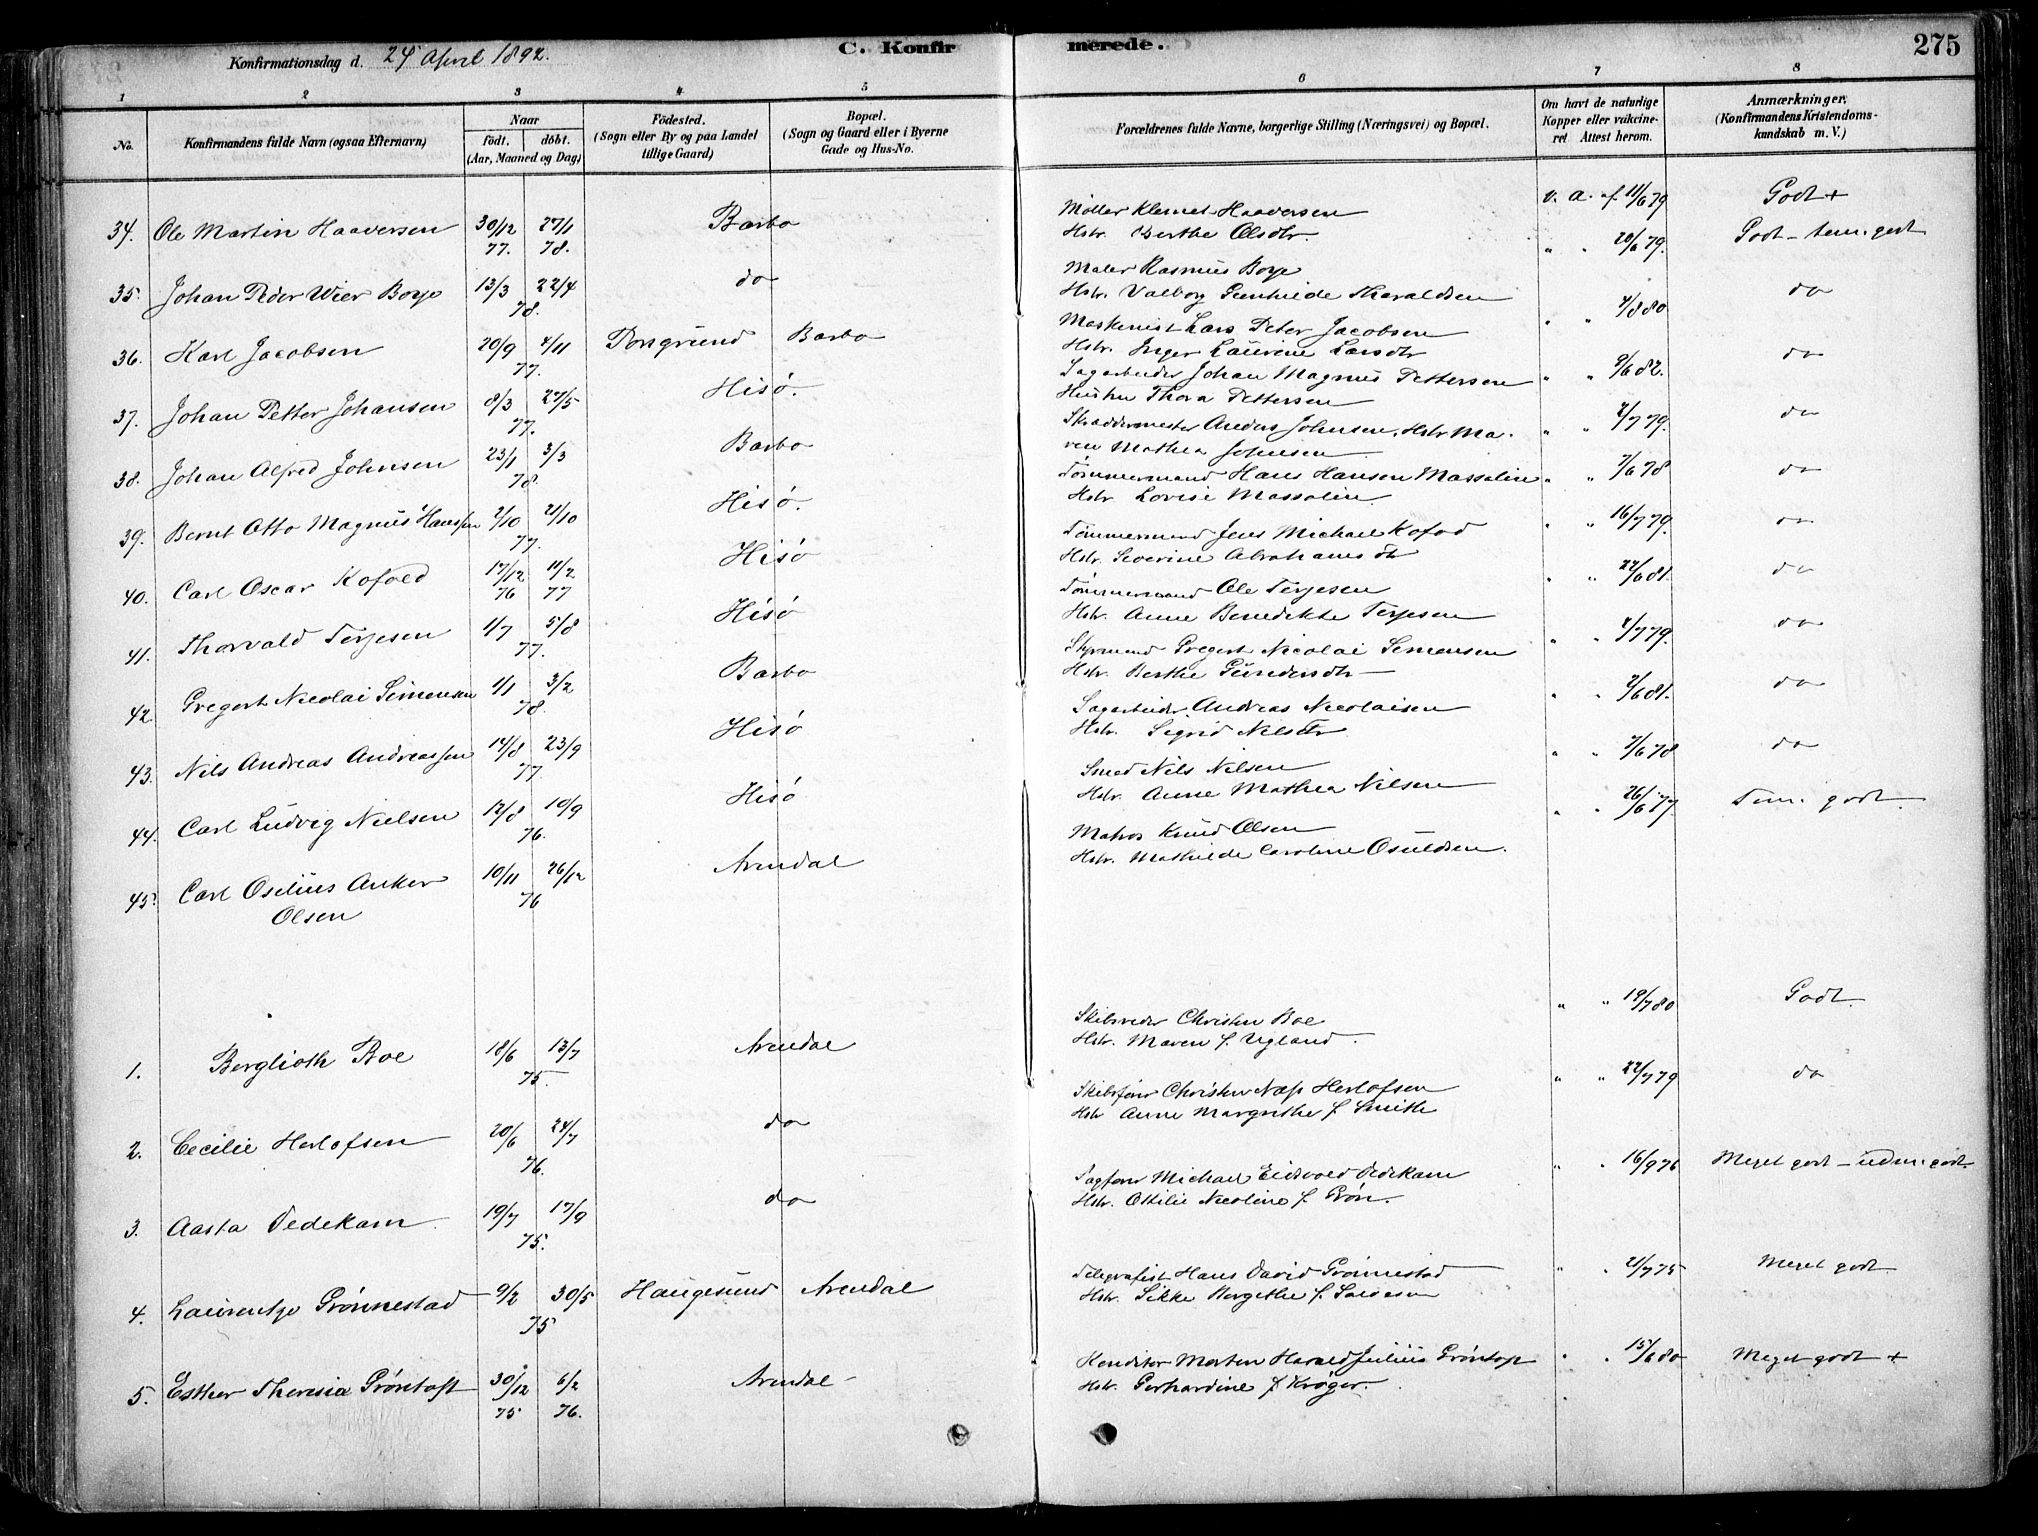 Konfirmationsdag d. 24 April 1892.
C. Konfirmerede.
275
1 2 3 4 5 6 7 8
No.
Konfirmandens fulde Navn (ogsaa Efternavn)
Naar
födt. döbt.
(Aar, Maaned og Dag)
Födested.
(Sogn eller By og paa Landet
tillige Gaard)
Bopæl.
(Sogn og Gaard eller i Byerne
Gade og Hus-No.
Forældrenes fulde Navne, borgerlige Stilling (Næringsvei) og Bopæl.
Om havt de naturlige
Kopper eller vakcine-
ret Attest herom.
Anmærkninger.
(Konfirmandens Kristendoms-
kundskab m. V.)
34. Ole Martin Haaversen 30/12 77. 27/1 78. Barbo
Møller Klemet Haaversen v. a. af 11/6 79 Godt +
Hstr. Berthe Olsdtr.
35. Johan Peder Wier Boye 13/3 22/4 78. do
Maler Rasmus Boye " " 20/6 79. Godt - tem. godt
Hstr. Valborg Gunhilde Tharaldsen
36. Karl Jacobsen 20/9 4/11 77. Porsgrund Barbo
Maskinist Lars Peter Jacobsen " " 4/8 80 do
Hstr. Inger Laurine Larsdtr
37. Johan Petter Johansen 8/3 27/5 77. Hisø.
Sagarbeider Johan Magnus Pettersen " " 9/6 82. do
Hustru Thora Pettersen
38. Johan Alfred Johnsen 23/1 3/3 78 Barbo
Skræddermester Anders Johnsen, Hstr Ma- " " 2/7 79. do
ren Mathea Johnsen
39. Bernt Otto Magnus Hanssen 2/10 21/10 77. Hisø.
Tømmermand Hans Hansen Massalin " " 7/6 78 do
Hstr Lovise Massalin
40. Carl Oscar Kofoed 17/12 76 11/2 77 Hisø
Tømmermand Jens Michael Kofod " " 16/7 79. do
Hstr. Severine Abrahamsdtr
41. Thorvald Terjesen 1/7 5/8 77. Hisø
Tømmermand Ole Terjesen " " 22/6 81. do
Hstr. Anne Benedikte Terjesen
42. Gregert Nicolai Simonsen 1/1 3/2 78. Barbo
Styrmand Gregert Nicolai Simonsen " " 2/7 79. do
Hstr. Berthe Gundersdtr
43. Nils Andreas Andreassen 14/8 23/9 77 Hisø
Sagarbeider Andreas Nicolaisen " " 2/6 81. do
Hstr. Sigrid Nilsdtr
44. Carl Ludvig Nielsen 12/8 10/9 76. Hisø
Smed Nils Nilsen " " 7/6 78 do
Hstr. Anne Mathea Nilsen
45. Carl Osilius Anker 10/11 26/12 76 Arendal
Olsen
Matros Knud Olsen " " 26/6 77 Tem. godt.
Hstr. Mathilde Caroline Osuldsen.
1. Bergljoth Boe 18/6 13/7 75. Arendal
Skibsreder Christen Boe " " 19/7 80 Godt.
Hstr. Maren f. Ugland.
2. Cecilie Herlofsen 20/6 24/7 76. do
Skibsfører Christen Næss Herlofsen " " 22/7 79 do
Hstr Anne Margrethe f. Smith
3. Aasta Dedekam 19/7 17/9 75. do
Sagfører Michael Eidsvold Dedekam " " 16/9 76 Meget godt - udm. godt.
Hstr. Ottilie Nicoline f. Grøn.
4. Laurentze Grønnestad 9/2 30/5 75 Haugesund Arendal
Telegrafist Hans David Grønnestad " " 21/7 75 Meget godt.
Hstr. Sikke Bergithe f.
5. Esther Theresia Grøntoft 30/12 75 6/2 76. Arendal
Konditor Morten Harald Julius Grøntoft " " 15/6 80 Meget godt +
Hstr. Gerhardine f. Krøger.